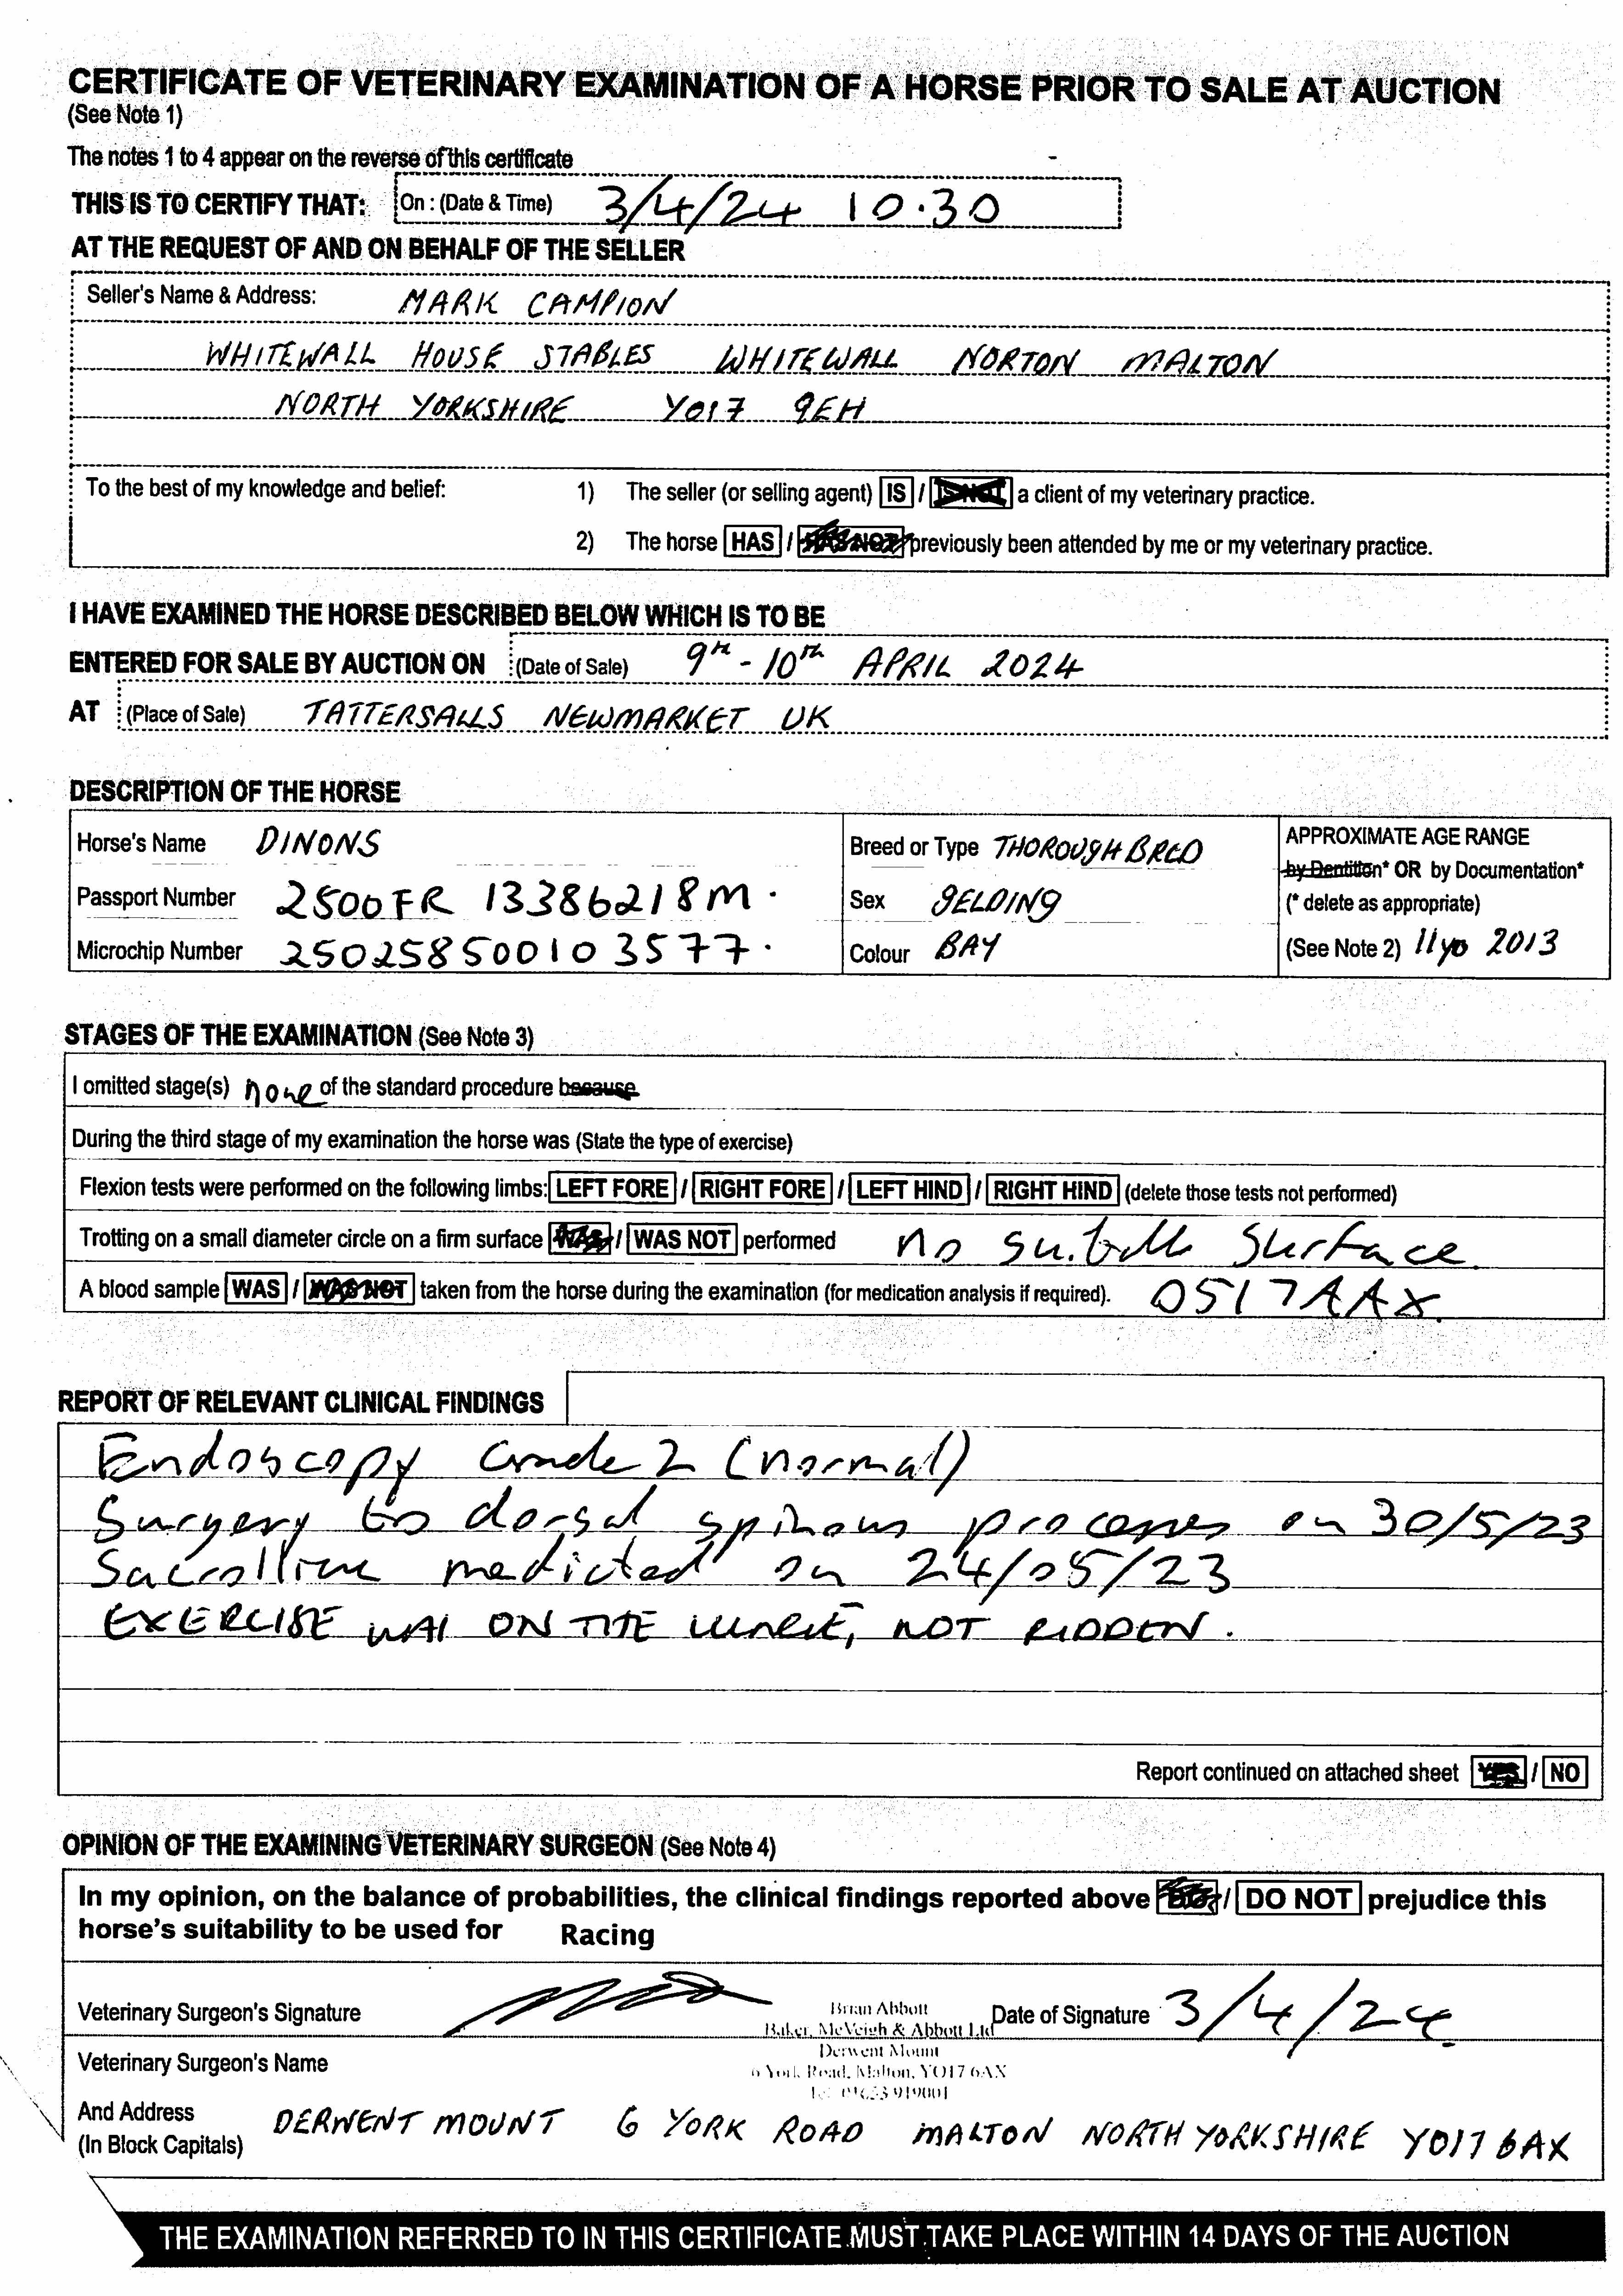 CERTIFICATE OF VETERINARY EXAMINATION OF A HORSE PRIOR TO SALE AT AUCTION
(See Note 1)
The notes 1 to 4 appear on the reverse of this certificate
THIS IS TO CERTIFY THAT: On : (Date & Time) 3/4/24 10.30
AT THE REQUEST OF AND ON BEHALF OF THE SELLER
Seller's Name & Address: MARK CAMPION
WHITEWALL HOUSE STABLES WHITEWALL NORTON MALTON
NORTH YORKSHIRE YO17 9EH
To the best of my knowledge and belief: 1) The seller (or selling agent) IS / IS NOT a client of my veterinary practice.
2) The horse HAS / HAS NOT previously been attended by me or my veterinary practice.
I HAVE EXAMINED THE HORSE DESCRIBED BELOW WHICH IS TO BE
ENTERED FOR SALE BY AUCTION ON (Date of Sale) 9th - 10th APRIL 2024
AT (Place of Sale) TATTERSALLS NEWMARKET UK
DESCRIPTION OF THE HORSE
Horse's Name DINONS Breed or Type THOROUGHBRED APPROXIMATE AGE RANGE
by Dentition* OR by Documentation*
Passport Number 2500FR 13386218M. Sex GELDING (* delete as appropriate)
Microchip Number 250258500103577. Colour BAY (See Note 2) 11yo 2013
STAGES OF THE EXAMINATION (See Note 3)
I omitted stage(s) none of the standard procedure because
During the third stage of my examination the horse was (State the type of exercise)
Flexion tests were performed on the following limbs: LEFT FORE / RIGHT FORE / LEFT HIND / RIGHT HIND (delete those tests not performed)
Trotting on a small diameter circle on a firm surface WAS / WAS NOT performed no surface
A blood sample WAS / WAS NOT taken from the horse during the examination (for medication analysis if required). 0517AAX.
REPORT OF RELEVANT CLINICAL FINDINGS
Endoscopy Grade 2 (normal)
Surgery to dorsal spinous processes on 30/5/23
medicated on 24/05/23
EXERCISE WAS ON THE NOT RIDDEN.
Report continued on attached sheet YES / NO
OPINION OF THE EXAMINING VETERINARY SURGEON (See Note 4)
In my opinion, on the balance of probabilities, the clinical findings reported above DO / DO NOT prejudice this
horse's suitability to be used for Racing
Veterinary Surgeon's Signature Brian Abbott Date of Signature 3/4/24
Baker, McVeigh & Abbott Ltd
Veterinary Surgeon's Name Derwent Mount
6 York Road, Malton, YO17 6AX
Tel: 01653 919001
And Address
(In Block Capitals) DERWENT MOUNT 6 YORK ROAD MALTON NORTH YORKSHIRE YO17 6AX
THE EXAMINATION REFERRED TO IN THIS CERTIFICATE MUST TAKE PLACE WITHIN 14 DAYS OF THE AUCTION